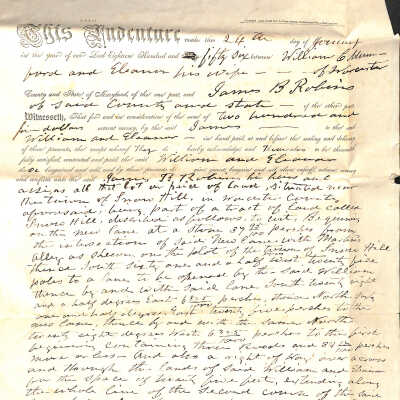 This Indenture made this 24th day of January
in the year of our Lord Eighteen Hundred and fifty six between William E
ford and Eleanor his wife of Worcester
County and State of Maryland, of the one part, and James B Robins
of said County and state of the other part
Witnesseth, That for and in consideration of the sum of two hundred and
dollars current money, by the said James to the said
William and Eleanor in hand paid, at and before the sealing and delivery
of these presents, the receipt whereof They hereby acknowledge and
fully satisfied, contented and paid the said William and Eleanor
bargained and sold
James B Robins his heirs and
assigns all that lot or piece of land situated near
the town of Snow Hill, in Worcester County
aforesaid, being part of a tract of land called
Snow Hill described as follows, to wit, Beginning
on the new lane at a stone 37 perches from
the intersection of said New lane with Martins
Alley as shewn on the plot of the town of Snow Hill
thence South sixty one and a half West twenty five
poles to a lane, to be opened by the said William
thence by and with said lane South twenty eight
and a half degrees East 6 perches, thence North sixty
one and half degrees East twenty five perches to the
new lane, thence by and with the same North
twenty eight degrees West 6 perches to the first
beginning containing three Roods and 34 perches
more or less. And also a right of Way over across
and through the lands of said William and Eleanor
for the space of twenty five feet, extending along
the whole line of the second course of the lane